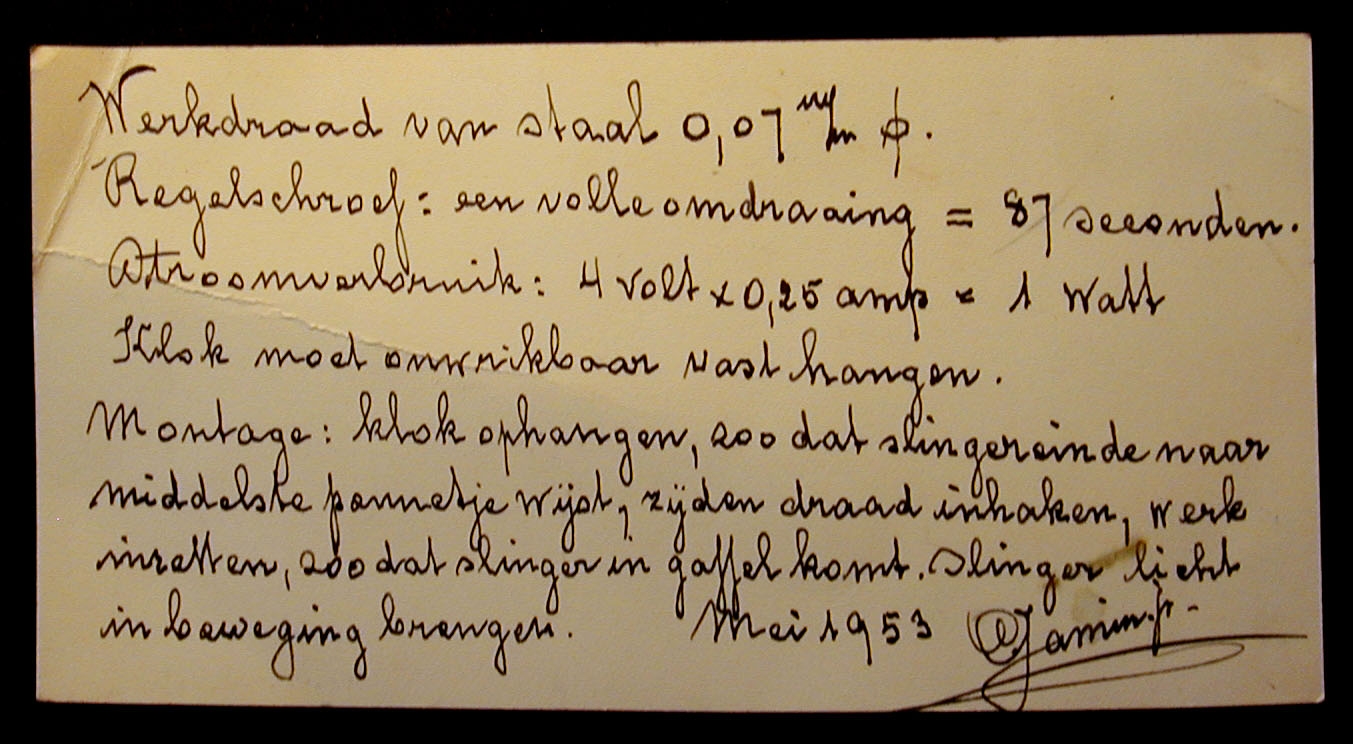 Werkdraad van staal 0,07 m/m ϕ.
Regelschroef: een volle omdraaing = 87 seconden.
Stroomverbruik: 4 Volt x 0,25 amp = 1 Watt
Klok moet onwrikbaar vast hangen.
Montage: klok ophangen, zoo dat slingereinde naar
middelste pennetje wijst, zijden draad inhaken, werk
inzetten, zoo dat slinger in gaffel komt. Slinger licht
in beweging brengen. Mei 1953 Jamin. jr.